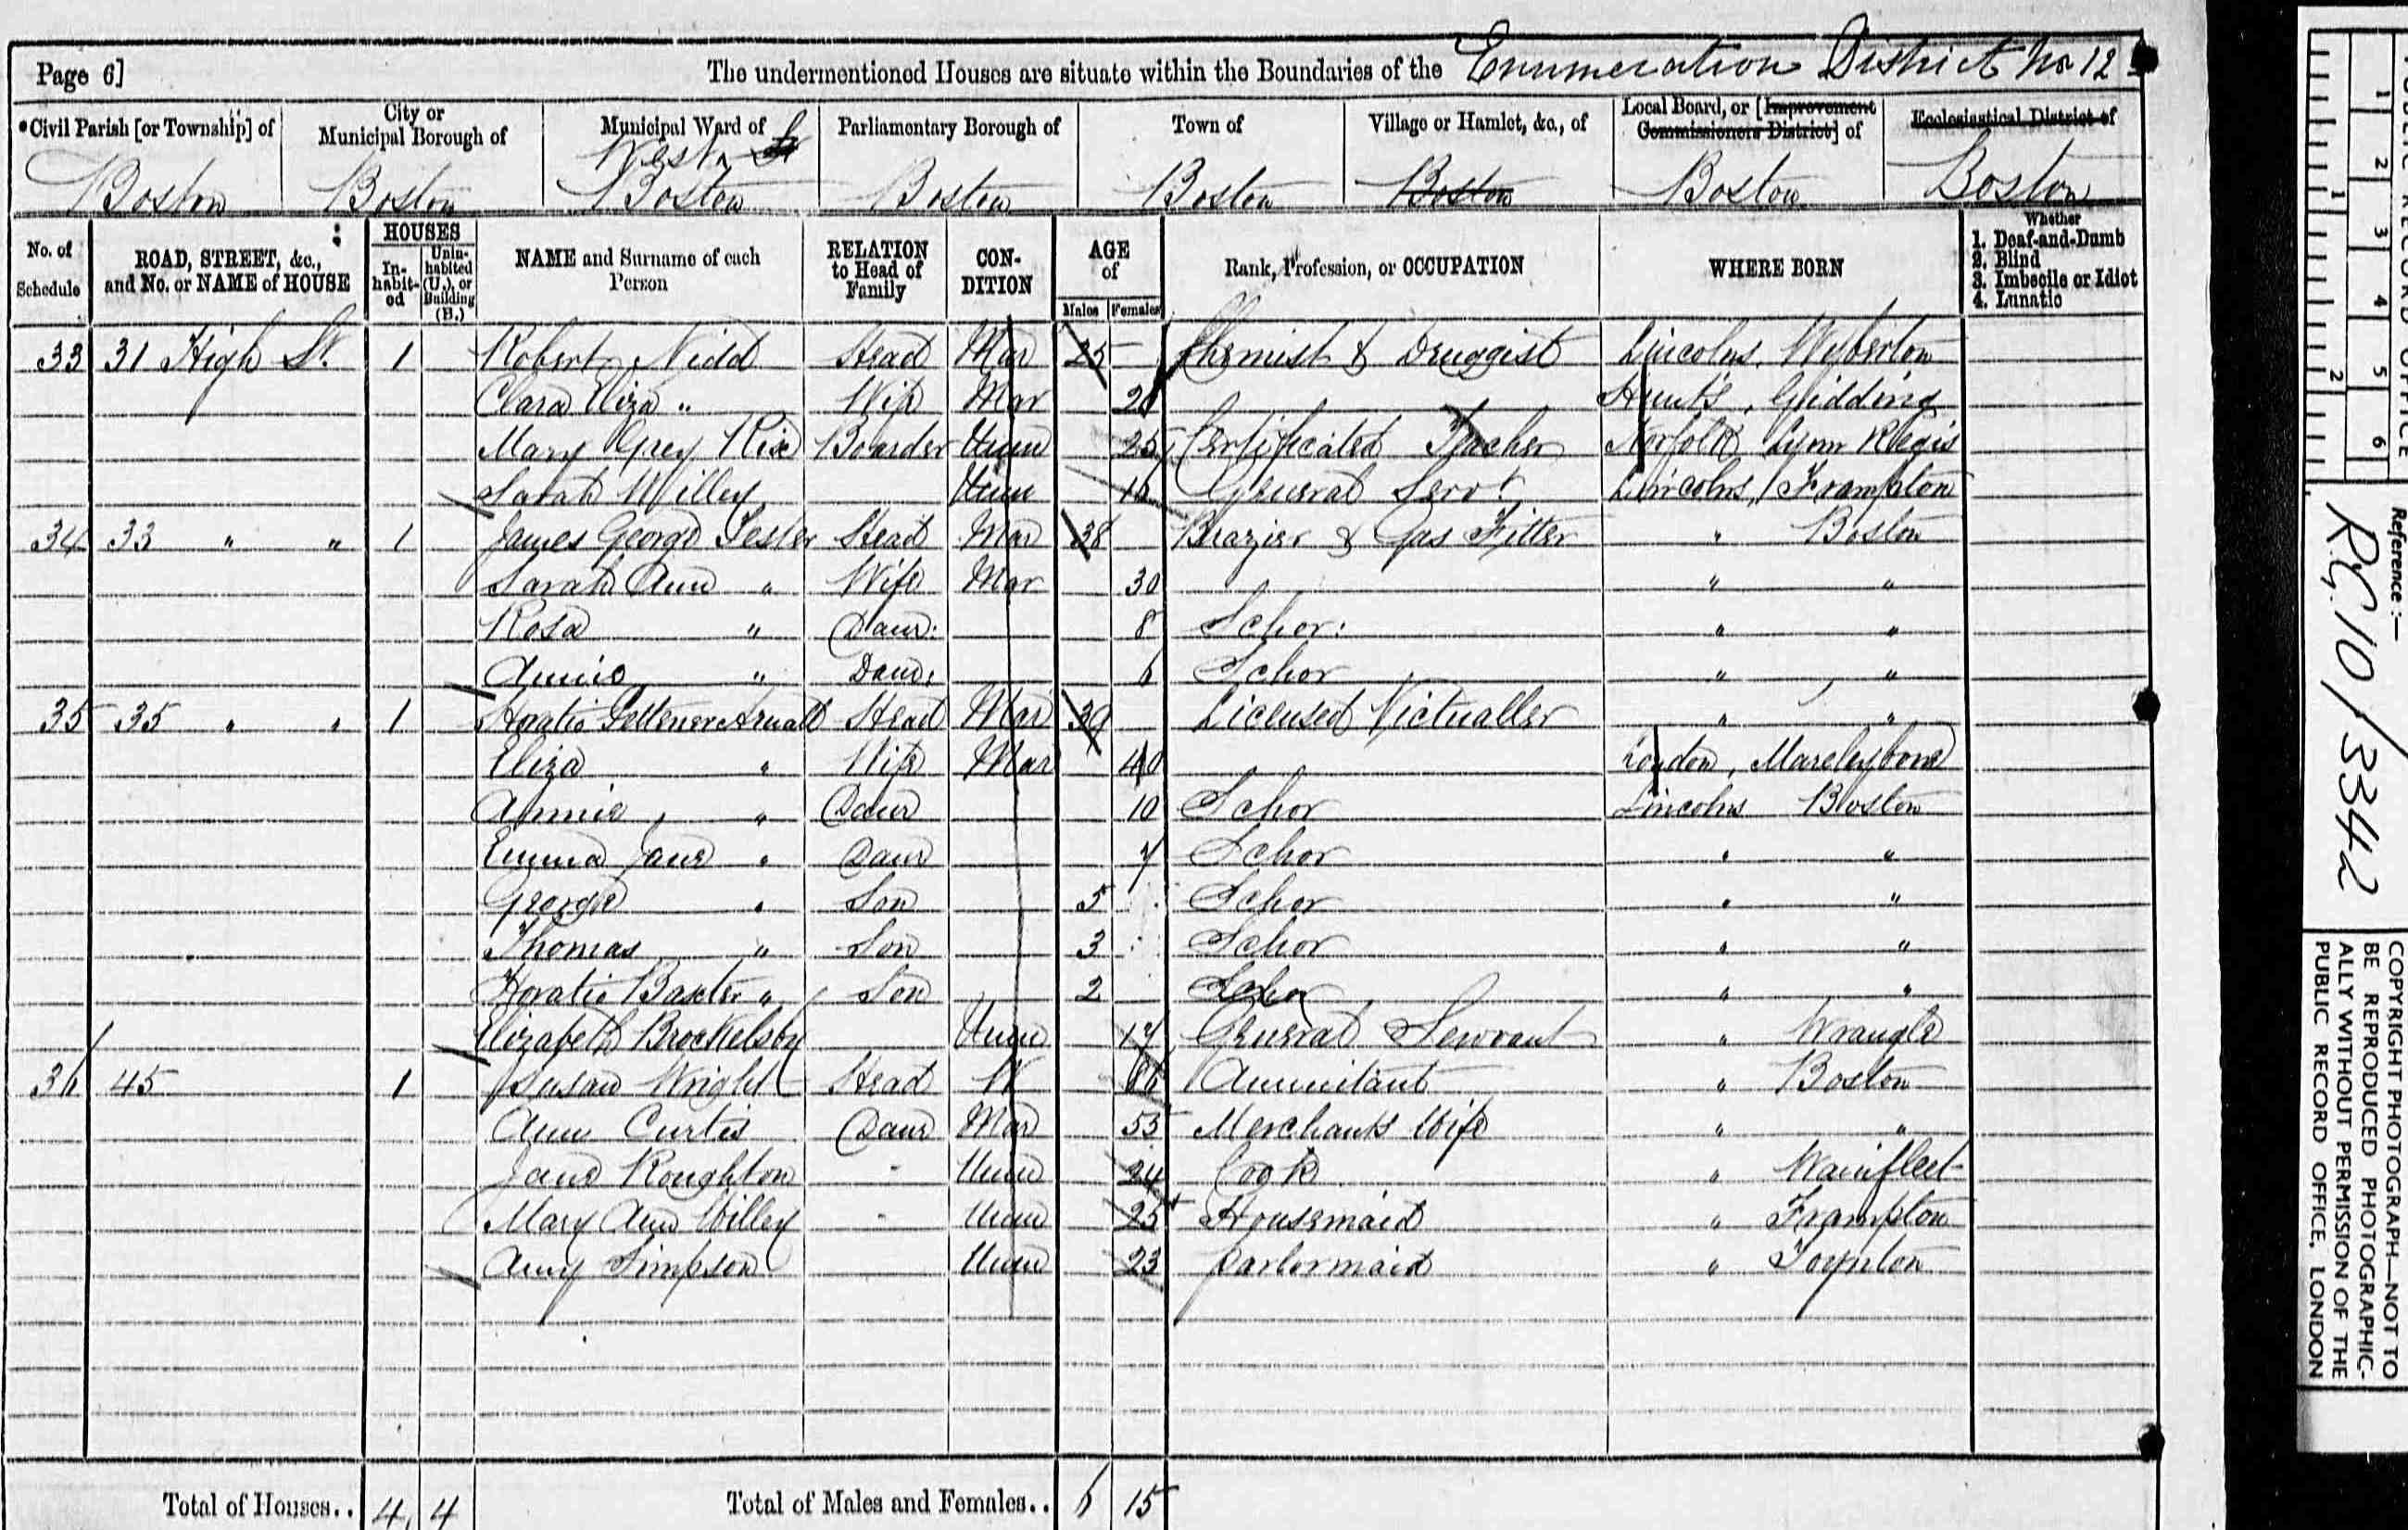 Page 6] The undermentioned Houses are situate within the Boundaries of the Enumeration District No 12
*Civil Parish [or Township] of City or Municipal Borough of Municipal Ward of Parliamentary Borough of Town of Village or Hamlet, &c., of Local Board, or [Improvement Commissioners District] of Ecclesiastical District of
West
Boston Boston Boston Boston Boston Boston Boston Boston
No. of Schedule ROAD, STREET, &c., and No. or NAME of HOUSE HOUSES Inhabited Uninhabited (U.), or Building (B.) NAME and Surname of each Person RELATION to Head of Family CONDITION AGE of Males Females Rank, Profession, or OCCUPATION WHERE BORN Whether
1. Deaf-and-Dumb
2. Blind
3. Imbecile or Idiot
4. Lunatic
33 31 High St. 1 Robert Nidd Head Mar 25 Chemist & Druggist Lincolns. Wyberton
Clara Eliza " Wife Mar Hunts, Gidding
Mary Grey Rix Boarder Unm 25 Certificated Teacher Norfolk Lynn Regis
Sarah Willey Unm General Servt Lincolns, Frampton
34 33 " " 1 James George Lester Head Mar 38 Brazier & Gas Fitter " Boston
Sarah Ann " Wife Mar 30 " "
Rosa " Daur: 8 Schor: " "
Annie " Daur: 6 Schor " "
35 35 " " 1 Horatio Head Mar 39 Licensed Victualler " "
Eliza " Wife Mar 40 London, Mareleybone
Annie " Daur 10 Schor Lincolns Boston
Emma Jane " Daur 7 Schor " "
George " Son 5 Schor " "
Thomas " Son 3 Schor " "
Horatio Baxter " Son 2 Schor " "
Elizabeth Brockelsby Unm 17 General Servant " Wrangle
36 45 1 Susan Wright Head W Annuitant " Boston
Ann Curtis Daur Mar 55 Merchants Wife " "
Jane Roughton - Unm 24 Cook " Wainfleet
Mary Ann Willey - Unm 25 Housemaid " Frampton
Amy Simpson Unm 23 Parlormaid " Toynton
Total of Houses.. 4 4 Total of Males and Females.. 6 15
1 2 3 4 5 6
1 2
PUBLIC RECORD OFFICE
Reference:—
RG 10/3342
COPYRIGHT PHOTOGRAPH—NOT TO
BE REPRODUCED PHOTOGRAPHIC-
ALLY WITHOUT PERMISSION OF THE
PUBLIC RECORD OFFICE, LONDON